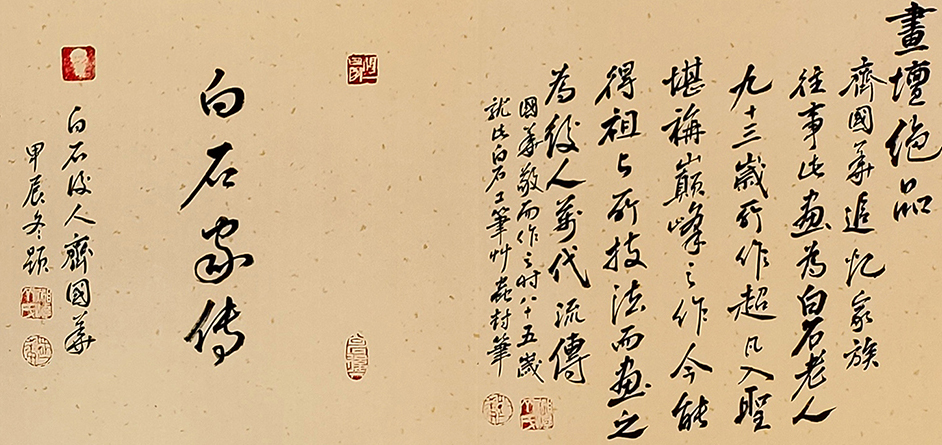 畫壇絕品
齊國華追忆家族
往事此畫為白石老人
九十三歲所作超凡入聖
堪稱巔峰之作今能
得祖与所技法而畫之
為後人萬代流傳
國華敬而作之时八十五歲
就此白石工筆艸虫封筆
白石家传
白石後人齊國華
甲辰冬题